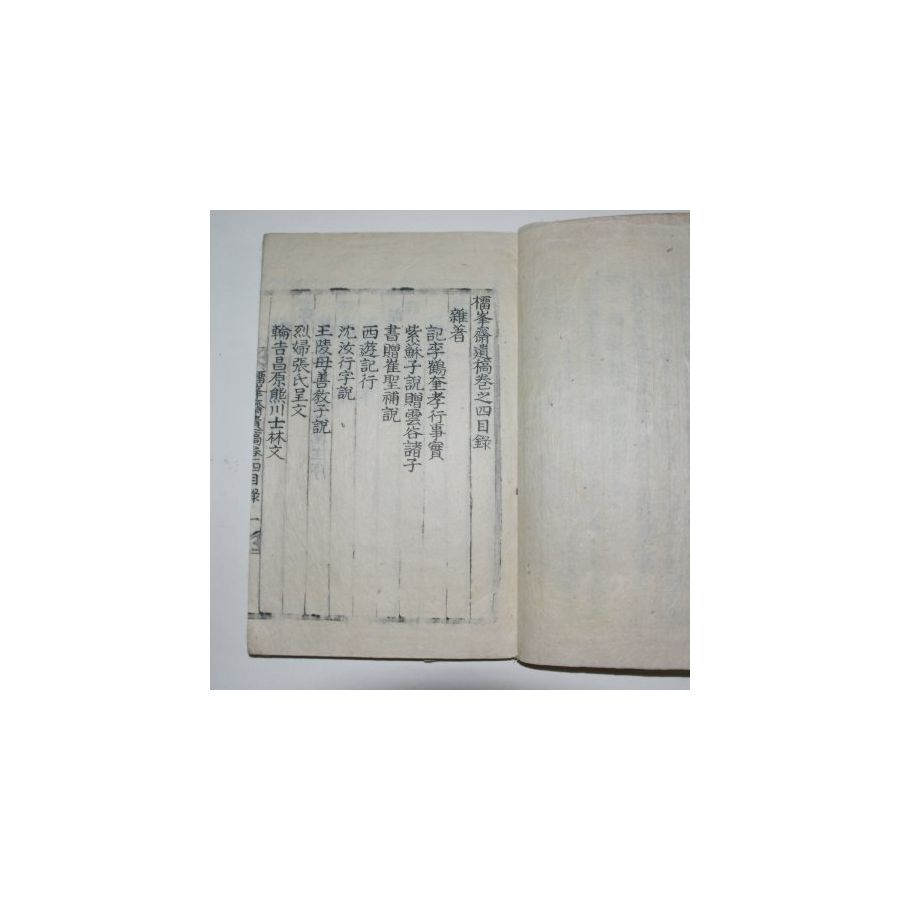 橊峯齋遺稿卷之四目錄
雜著
記李鶴奎孝行事實
紫蘇子說贈雲谷諸子
書贈崔聖補說
西遊記行
沈汝行字說
王陵母善敎子說
烈婦張氏呈文
輪告昌原熊川士林文
橊峯齋遺稿卷四目錄 一